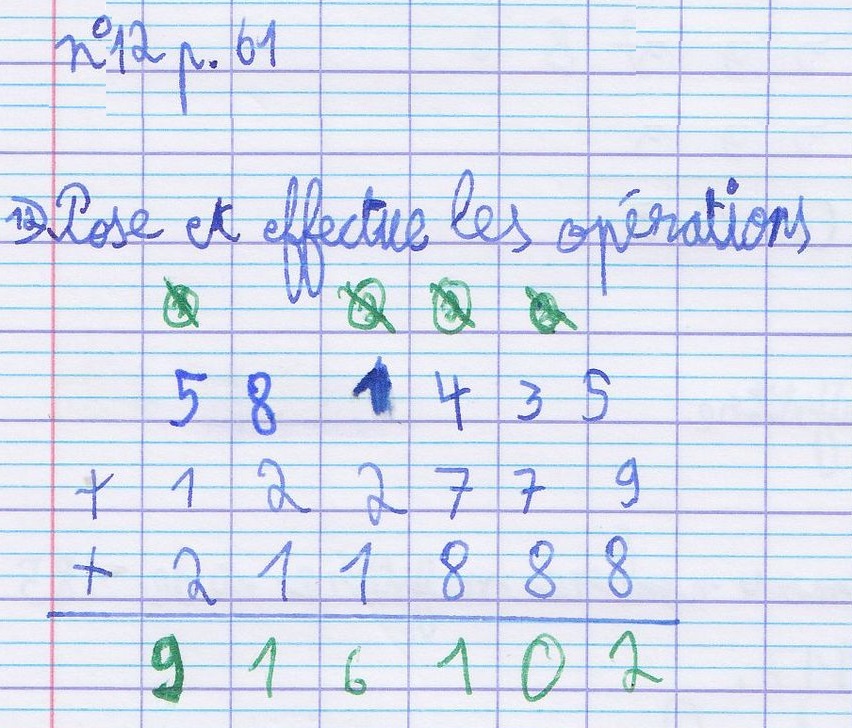 n°12 p. 61
12) Pose et effectue les opérations
5 8 1 4 3 5
+ 1 2 2 7 7 9
+ 2 1 1 8 8 8
9 1 6 1 0 2